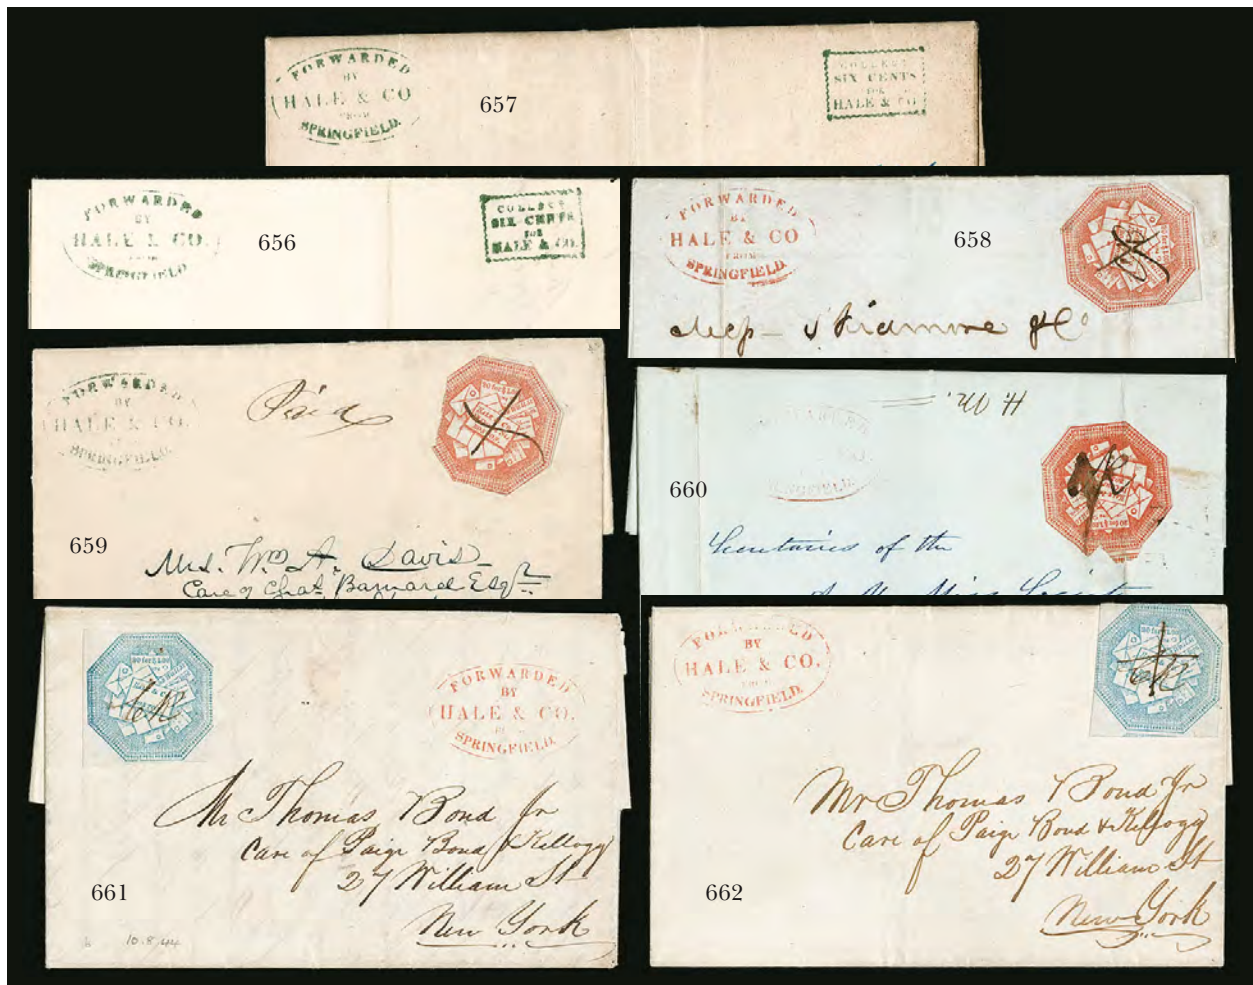 FORWARDED
BY
HALE & CO
FROM
SPRINGFIELD.
657
COLLECT
SIX CENTS
for
HALE & CO.
FORWARDED
BY
HALE & CO.
FROM
SPRINGFIELD
656
COLLECT
SIX CENTS
for
HALE & CO.
FORWARDED
BY
HALE & CO
FROM
SPRINGFIELD.
658
Skidmore & Co
FORWARDED
BY
HALE & CO.
SPRINGFIELD.
Paid
20 for $1.00
659
Mrs. Wm A. Davis
Care of Chas. Barnard Esqr
H. M.
660
Secretaries of the
FORWARDED
BY
HALE & CO.
SPRINGFIELD.
20 for $1.00
Mr Thomas Bond Jr
Care of Paige Bond & Kellogg
27 William St
661
New York
10.8.44
FORWARDED
BY
HALE & CO.
FROM
SPRINGFIELD.
20 for $1.00
Mr Thomas Bond Jr
Care of Paige Bond & Kellogg
27 William St
662
New York